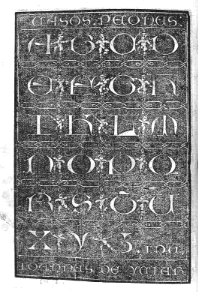 CASOS PEONES
A B C D
E F G H
I K L M
N O P Q
R S T U
X Y Z
IOANNES DE YCIAR